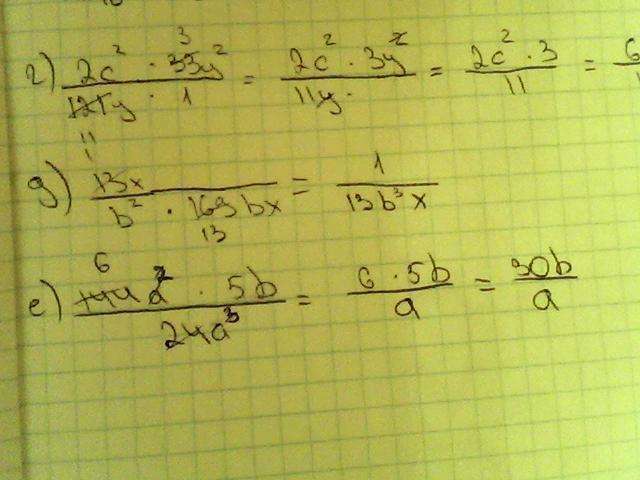 г) (2c² · 33y²)/(121y · 1) = (2c² · 3y²)/(11y ·) = (2c² · 3)/11 = 6
3
11
1
д) 13x/(b² · 169bx) = 1/(13b³x)
13
6
е) (144a² · 5b)/(24a³) = (6 · 5b)/a = 30b/a